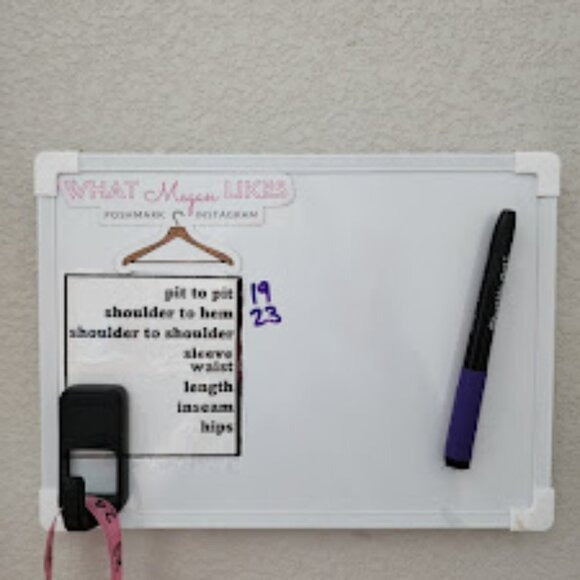 WHAT Megan LIKES
POSHMARK INSTAGRAM
pit to pit 19
shoulder to hem 23
shoulder to shoulder
sleeve
waist
length
inseam
hips